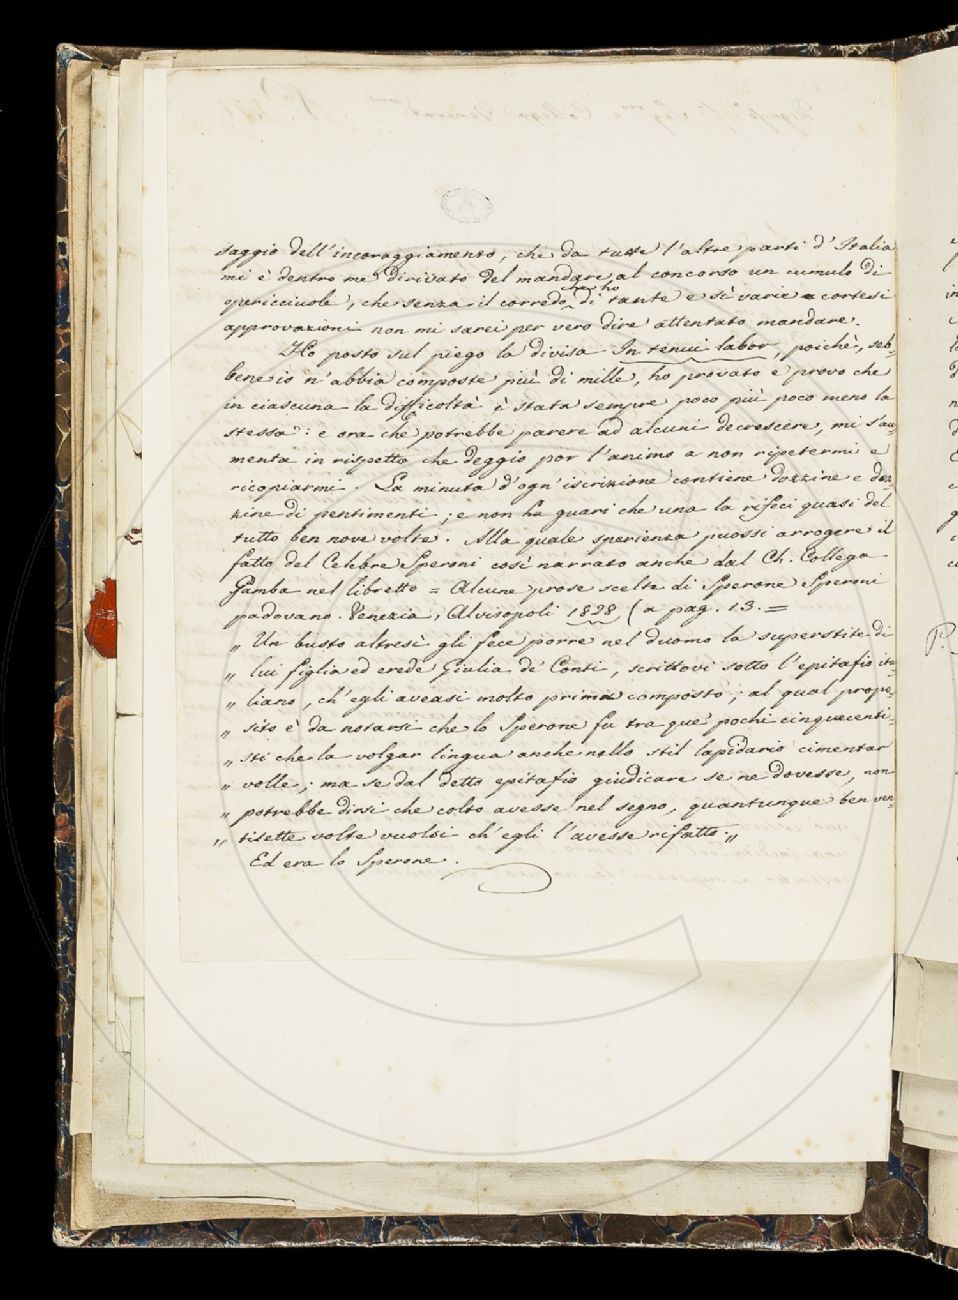 saggio dell'incoraggiamento, che da tutte l'altre parti d'Italia
mi è dentro me divisato del mandare al concorso un cumulo di
opericciuole, che senza il corredo che ho di tante e sì varie e cortesi
approvazioni non mi sarei per vero dire attentato mandare.
Ho posto sul piego la divisa In tenui labor, poichè, seb-
bene io n'abbia composte più di mille, ho provato e provo che
in ciascuna la difficoltà è stata sempre poco più poco meno la
stessa: e ora che potrebbe parere ad alcuni decrescere, mi s'au-
menta in rispetto che deggio por l'animo a non ripetermi e
ricopiarmi. La minuta d'ogn'iscrizione contiene dozzine e doz-
zine di pentimenti; e non ha guari che una la rifeci quasi del
tutto ben nove volte. Alla quale sperienza puossi arrogere il
fatto del Celebre Speroni così narrato anche dal Ch. Collega
Gamba nel libretto = Alcune prose scelte di Sperone Speroni
padovano. Venezia, Alvisopoli 1828 (a pag. 13. =
„ Un busto altresì gli fece porre nel duomo la superstite di
„ lui figlia ed erede Giulia de' Conti, scrittovi sotto l'epitafio ita-
„ liano, ch'egli aveasi molto prima composto; al qual propo-
„ sito è da notarsi che lo Sperone fu tra que' pochi cinquecenti-
„ sti che la volgar lingua anche nello stil lapidario cimentar
„ volle; ma se dal detto epitafio giudicare se ne dovesse, non
„ potrebbe dirsi che colto avesse nel segno, quantunque ben ven-
„ tisette volte vuolsi ch'egli l'avesse rifatto. „
Ed era lo Sperone.